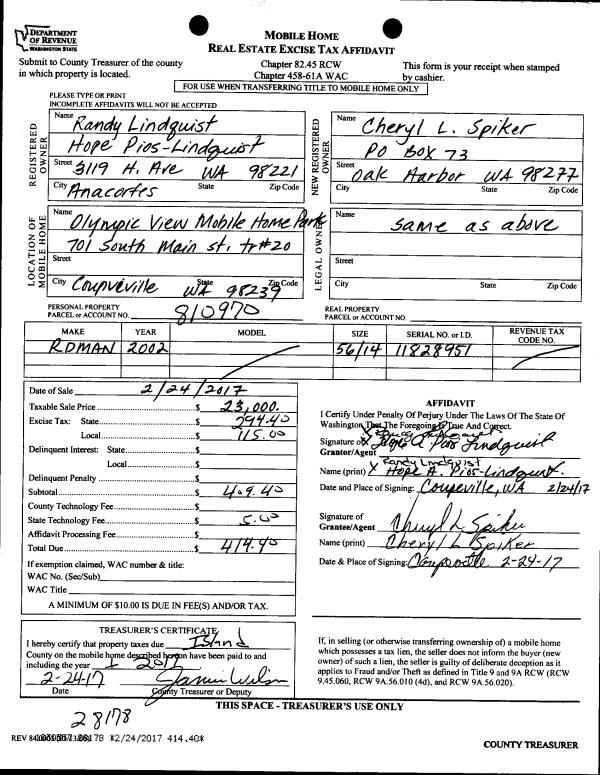 DEPARTMENT
OF REVENUE
WASHINGTON STATE
MOBILE HOME
REAL ESTATE EXCISE TAX AFFIDAVIT
Submit to County Treasurer of the county
in which property is located.
Chapter 82.45 RCW
Chapter 458-61A WAC
This form is your receipt when stamped
by cashier.
FOR USE WHEN TRANSFERRING TITLE TO MOBILE HOME ONLY
PLEASE TYPE OR PRINT
INCOMPLETE AFFIDAVITS WILL NOT BE ACCEPTED
REGISTERED OWNER
Name Randy Lindquist
Hope Pios-Lindquist
Street 3119 H. Ave WA 98221
City Anacortes State Zip Code
NEW REGISTERED OWNER
Name Cheryl L. Spiker
PO Box 73
Street Oak Harbor WA 98277
City State Zip Code
LOCATION OF MOBILE HOME
Name Olympic View Mobile Home Park
701 South Main St. tr#20
Street
City Coupeville State WA 98239 Zip Code
LEGAL OWNER
Name
same as above
Street
City State Zip Code
PERSONAL PROPERTY
PARCEL or ACCOUNT NO. 810970
REAL PROPERTY
PARCEL or ACCOUNT NO.
MAKE YEAR MODEL SIZE SERIAL NO. or I.D. REVENUE TAX CODE NO.
RDMAN 2002 56/14 11828951
Date of Sale 2/24/2017
Taxable Sale Price $ 23,000.
Excise Tax: State $ 294.40
Local $ 115.00
Delinquent Interest: State $
Local $
Delinquent Penalty $
Subtotal $ 409.40
County Technology Fee $
State Technology Fee $ 5.00
Affidavit Processing Fee $
Total Due $ 414.40
If exemption claimed, WAC number & title:
WAC No. (Sec/Sub)
WAC Title
A MINIMUM OF $10.00 IS DUE IN FEE(S) AND/OR TAX.
AFFIDAVIT
I Certify Under Penalty Of Perjury Under The Laws Of The State Of
Washington That The Foregoing Is True And Correct.
Signature of
Grantor/Agent X Hope A Pios Lindquist
Randy Lindquist
Name (print) X Hope A. Pios-Lindquist
Date and Place of Signing: Coupeville, WA 2/24/17
Signature of
Grantee/Agent Cheryl L Spiker
Name (print) Cheryl L Spiker
Date & Place of Signing: Coupeville 2-24-17
TREASURER'S CERTIFICATE
I hereby certify that property taxes due Island
County on the mobile home described hereon have been paid to and
including the year 2017
2-24-17
Date County Treasurer or Deputy
If, in selling (or otherwise transferring ownership of) a mobile home
which possesses a tax lien, the seller does not inform the buyer (new
owner) of such a lien, the seller is guilty of deliberate deception as it
applies to Fraud and/or Theft as defined in Title 9 and 9A RCW (RCW
9.45.060, RCW 9A.56.010 (4d), and RCW 9A.56.020).
THIS SPACE - TREASURER'S USE ONLY
28178
REV 84 28178 2/24/2017 414.40
COUNTY TREASURER